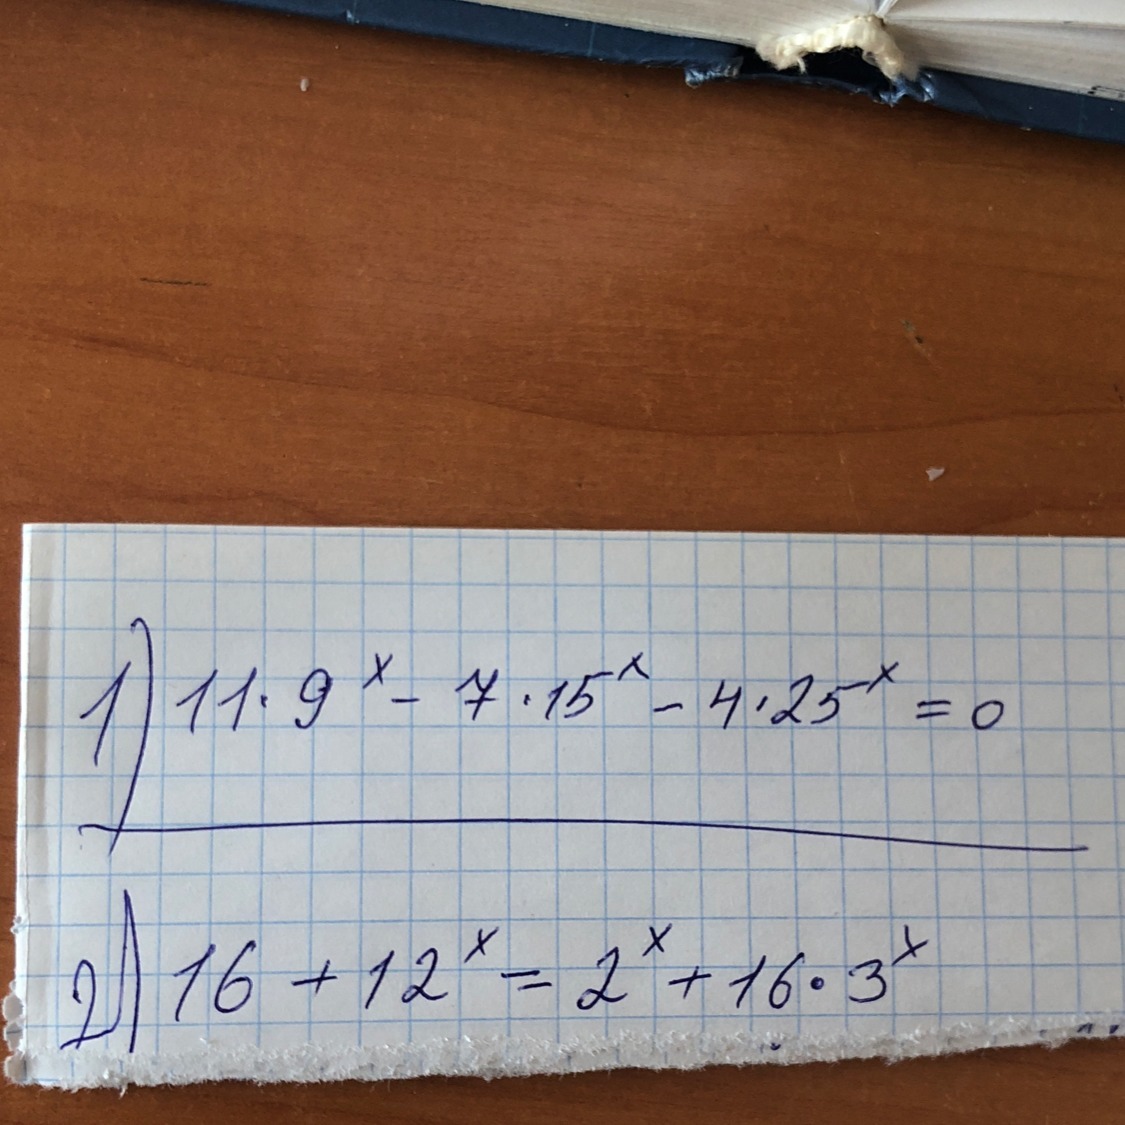 1) 11·9^x - 7·15^x - 4·25^x = 0
2) 16 + 12^x = 2^x + 16·3^x